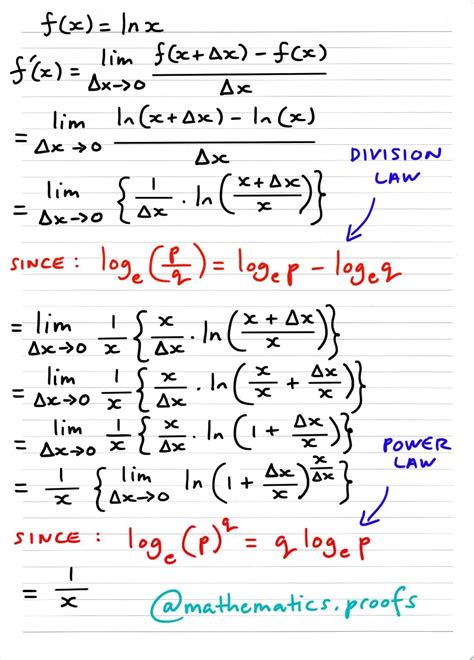 f(x) = ln x
f'(x) = lim Δx→0 f(x+Δx) − f(x) / Δx
= lim Δx→0 ln(x+Δx) − ln(x) / Δx
DIVISION LAW
= lim Δx→0 { 1/Δx · ln( x+Δx / x ) }
SINCE : logₑ(p/q) = logₑp − logₑq
= lim Δx→0 1/x { x/Δx · ln( x + Δx / x ) }
= lim Δx→0 1/x { x/Δx · ln( x/x + Δx/x ) }
= lim Δx→0 1/x { x/Δx · ln( 1 + Δx/x ) }
POWER LAW
= 1/x { lim Δx→0 ln( 1 + Δx/x )^(x/Δx) }
SINCE : logₑ(p)^q = q logₑp
= 1/x
@mathematics.proofs